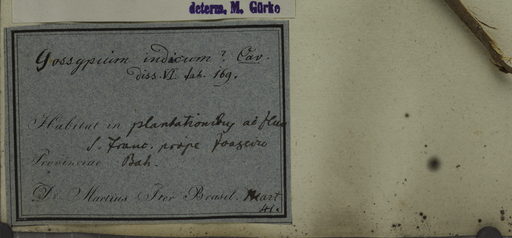 determ. M. Gürke
Gossypium indicum? Cav.
diss. VI tab. 169.
Habitat in plantationibus ad fluv
S. Franc. prope Joazeiro
Provinciae Bah.
Dr. Martius Iter Brasil. Mart